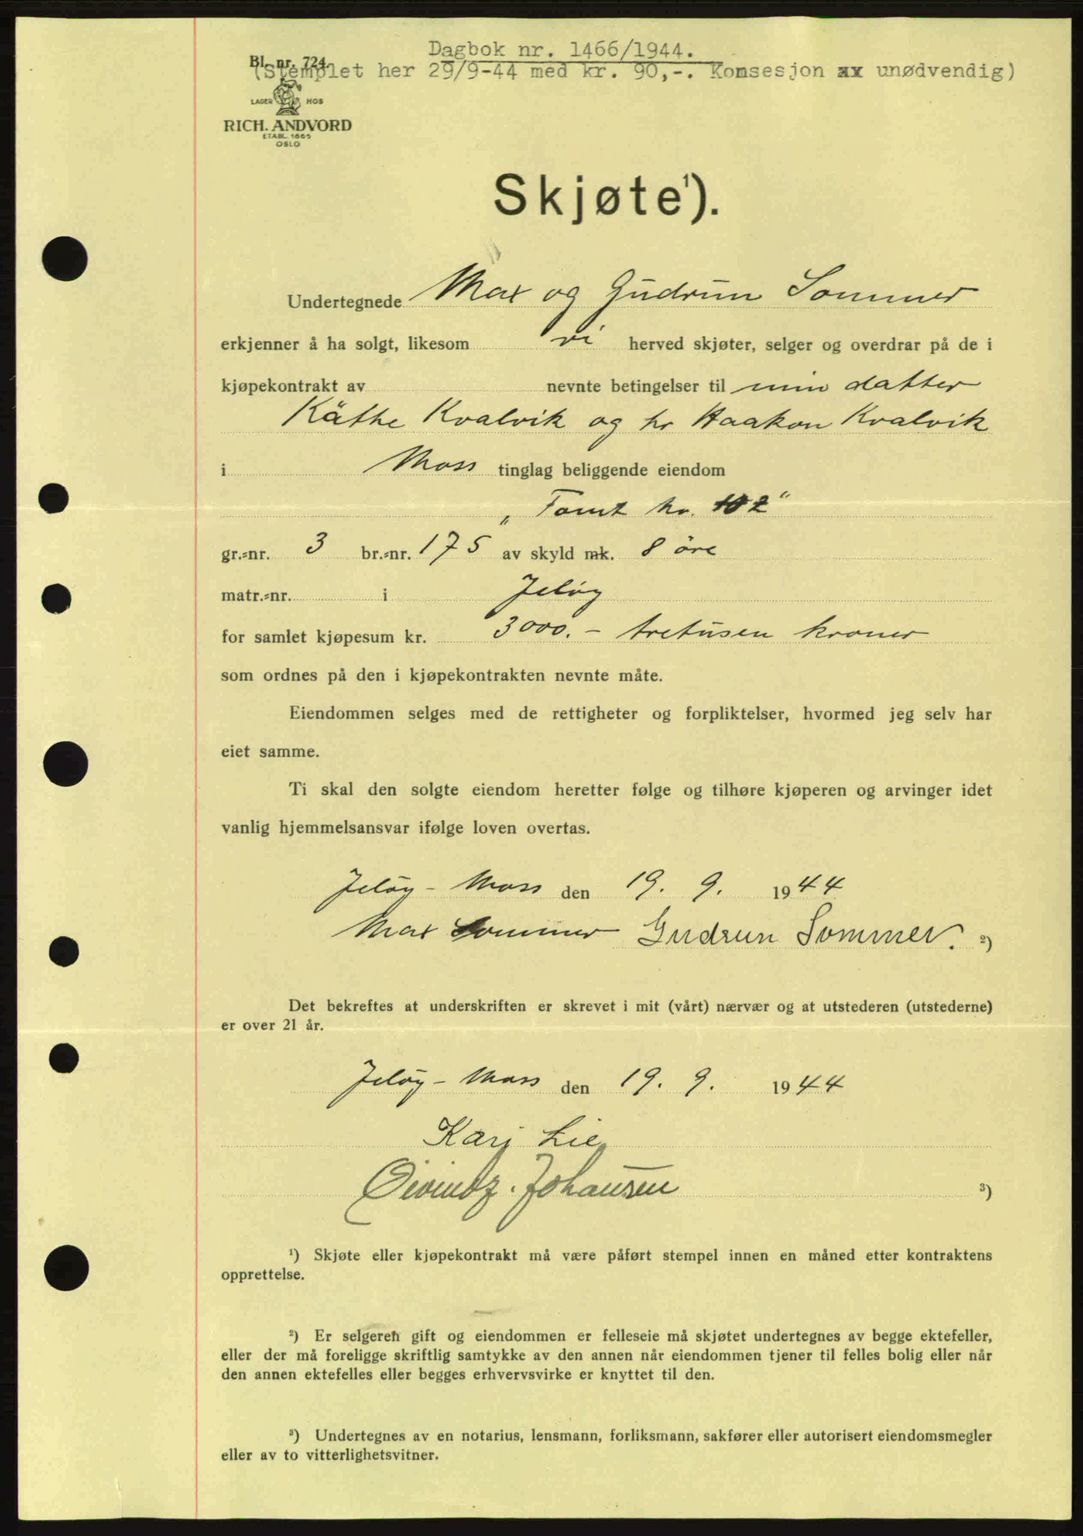 Dagbok nr. 1466/1944.
Bl. nr. 724
(Stemplet her 29/9-44 med kr. 90,-. Konsesjon ax unødvendig)
LAGER HOS
RICH. ANDVORD
ETABL. 1865
OSLO
Skjøte¹).
Undertegnede Max og Gudrun Sommer
erkjenner å ha solgt, likesom vi herved skjøter, selger og overdrar på de i
kjøpekontrakt av nevnte betingelser til min datter
Käthe Kvalvik og hr Haakon Kvalvik
i Moss tinglag beliggende eiendom
„Tomt nr. 102"
gr.-nr. 3 br.-nr. 175 av skyld mk. 8 øre
matr.-nr. i Jeløy
for samlet kjøpesum kr. 3000.- tretusen kroner
som ordnes på den i kjøpekontrakten nevnte måte.
Eiendommen selges med de rettigheter og forpliktelser, hvormed jeg selv har
eiet samme.
Ti skal den solgte eiendom heretter følge og tilhøre kjøperen og arvinger idet
vanlig hjemmelsansvar ifølge loven overtas.
Jeløy - Moss den 19. 9. 1944
Max Sommer Gudrun Sommer. ²)
Det bekreftes at underskriften er skrevet i mit (vårt) nærvær og at utstederen (utstederne)
er over 21 år.
Jeløy - Moss den 19. 9. 1944
Kari Lie
Øivind Johansen ³)
¹) Skjøte eller kjøpekontrakt må være påført stempel innen en måned etter kontraktens
opprettelse.
²) Er selgeren gift og eiendommen er felleseie må skjøtet undertegnes av begge ektefeller,
eller der må foreligge skriftlig samtykke av den annen når eiendommen tjener til felles bolig eller når
den annen ektefelles eller begges erhvervsvirke er knyttet til den.
³) Undertegnes av en notarius, lensmann, forliksmann, sakfører eller autorisert eiendomsmegler
eller av to vitterlighetsvitner.